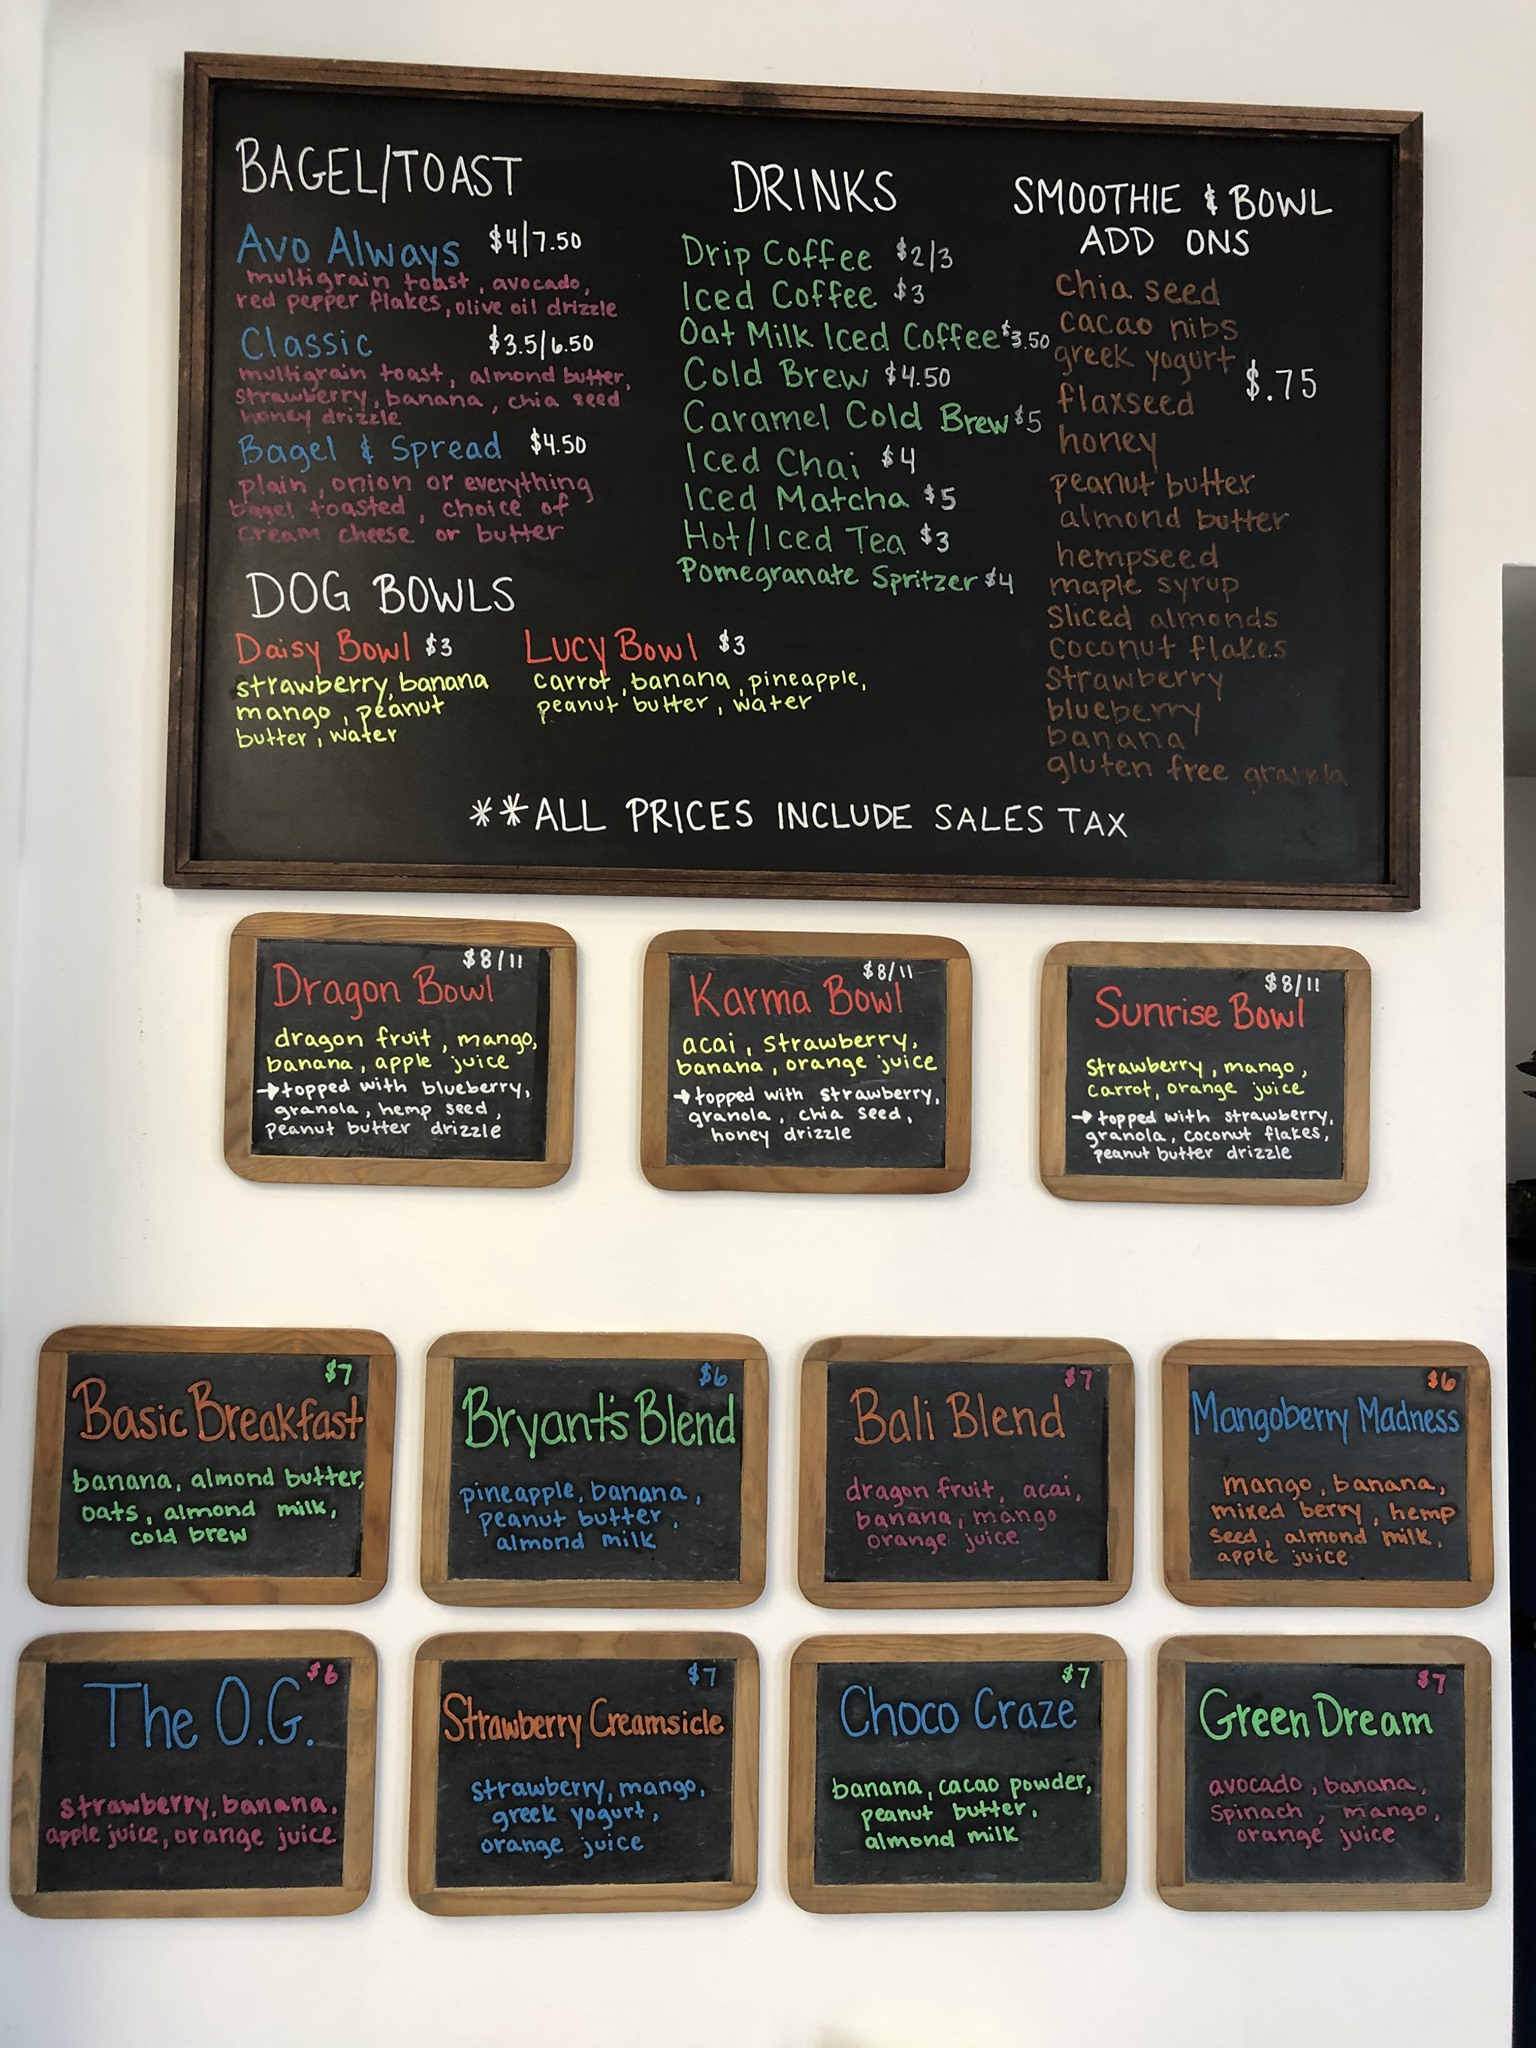 BAGEL/TOAST
Avo Always $4/7.50
multigrain toast, avocado,
red pepper flakes, olive oil drizzle
Classic $3.5/6.50
multigrain toast, almond butter,
strawberry, banana, chia seed
honey drizzle
Bagel & Spread $4.50
plain, onion or everything
bagel toasted, choice of
cream cheese or butter
DOG BOWLS
Daisy Bowl $3
strawberry, banana
mango, peanut
butter, water
Lucy Bowl $3
carrot, banana, pineapple,
peanut butter, water
DRINKS
Drip Coffee $2/3
Iced Coffee $3
Oat Milk Iced Coffee $3.50
Cold Brew $4.50
Caramel Cold Brew $5
Iced Chai $4
Iced Matcha $5
Hot/Iced Tea $3
Pomegranate Spritzer $4
SMOOTHIE & BOWL
ADD ONS
chia seed
cacao nibs
greek yogurt
$.75
flaxseed
honey
peanut butter
almond butter
hempseed
maple syrup
sliced almonds
coconut flakes
strawberry
blueberry
banana
gluten free granola
**ALL PRICES INCLUDE SALES TAX
$8/11
Dragon Bowl
dragon fruit, mango,
banana, apple juice
→topped with blueberry,
granola, hemp seed,
peanut butter drizzle
$8/11
Karma Bowl
acai, strawberry,
banana, orange juice
→topped with strawberry,
granola, chia seed,
honey drizzle
$8/11
Sunrise Bowl
strawberry, mango,
carrot, orange juice
→topped with strawberry,
granola, coconut flakes,
peanut butter drizzle
$7
Basic Breakfast
banana, almond butter,
oats, almond milk,
cold brew
$6
Bryant's Blend
pineapple, banana,
peanut butter,
almond milk
$7
Bali Blend
dragon fruit, acai,
banana, mango
orange juice
$6
Mangoberry Madness
mango, banana,
mixed berry, hemp
seed, almond milk,
apple juice
$6
The O.G.
strawberry, banana,
apple juice, orange juice
$7
Strawberry Creamsicle
strawberry, mango,
greek yogurt,
orange juice
$7
Choco Craze
banana, cacao powder,
peanut butter,
almond milk
$7
Green Dream
avocado, banana,
spinach, mango,
orange juice